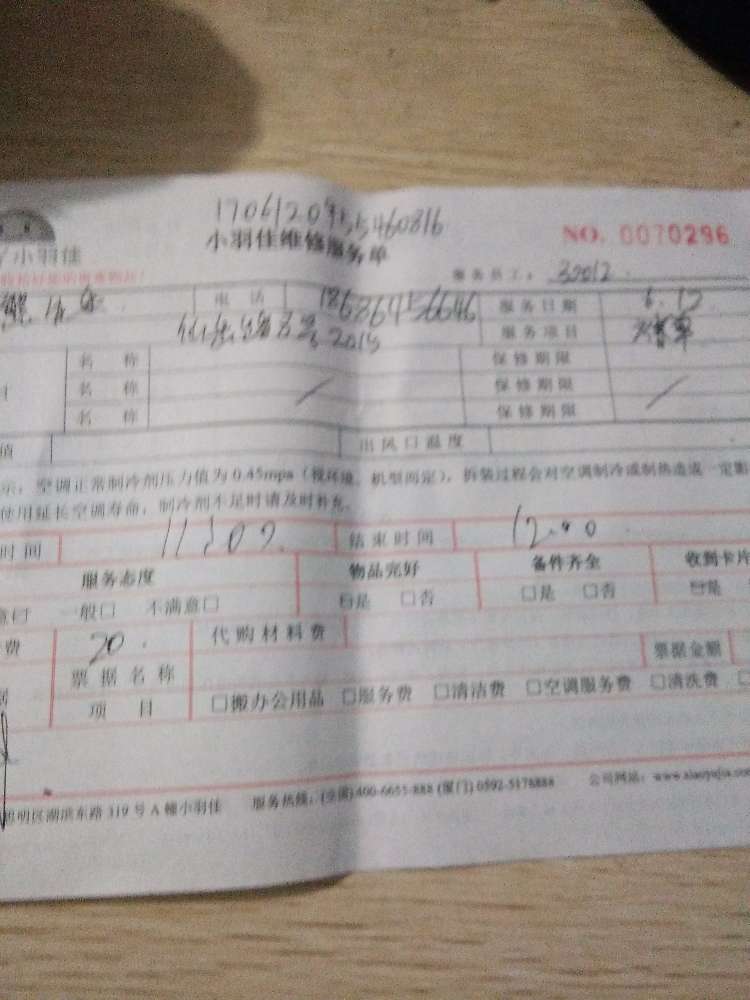 17061209455460816
小羽佳维修服务单
NO. 0070296
小羽佳
服务员工: 32012
电话 18686456646 服务日期 6.12
2015 服务项目
名称 保修期限
名称 保修期限
名称 保修期限
值 出风口温度
示，空调正常制冷剂压力值为0.45mpa（视环境、机型而定），拆装过程会对空调制冷或制热造成一定影
使用延长空调寿命，制冷剂不足时请及时补充。
时间 11:02 结束时间 12.40
服务态度 物品完好 备件齐全 收到卡片
意□ 一般□ 不满意□ □是 □否 □是 □否 □是
费 20. 代购材料费
票据名称 票据金额
项目 □搬办公用品 □服务费 □清洁费 □空调服务费 □清洗费
思明区湖滨东路319号A幢小羽佳 服务热线：(全国)400-6655-888 (厦门)0592-5178888 公司网站：www.xiaoyujia.com